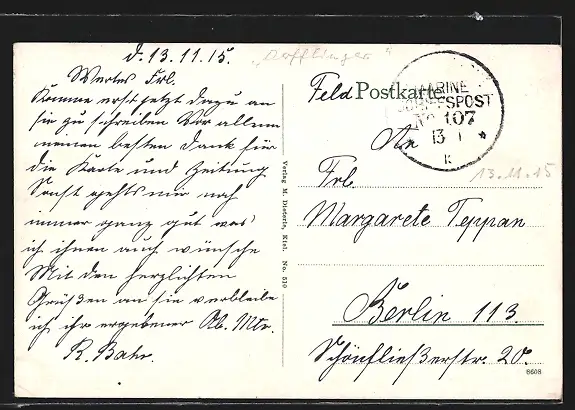 d. 13.11.15.
"Derfflinger"
Wertes Frl.
Komme erst jetzt dazu an
sie zu schreiben Vor allem
meinen besten Dank für
die Karte und Zeitung
Sonst gehts mir noch
immer ganz gut was
ich ihnen auch wünsche
Mit den herzlichten
Grüßen an sie verbleibe
ich ihr ergebener Ob. Mtr.
R. Bahr.
Verlag M. Dieterle, Kiel. No. 510
Feld Postkarte
MARINE
SCHIFFSPOST
No 107
13
K
13.11.15
An
Frl.
Margarete Teppan
Berlin 113.
Schönfließerstr. 20.
8608